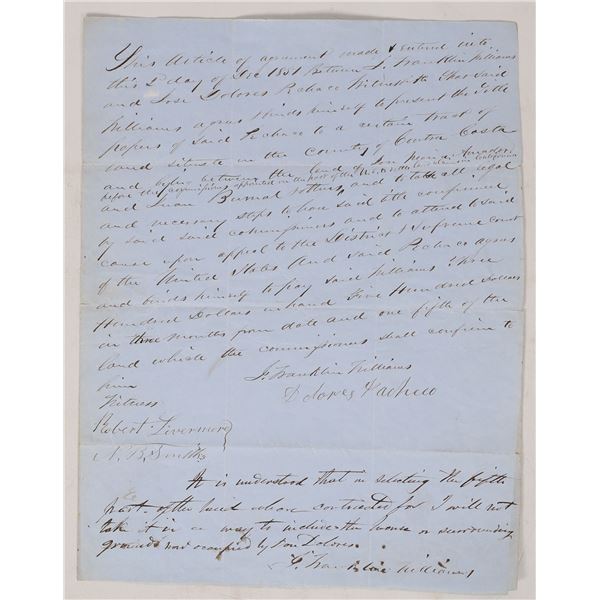 This Article of agreement made & entered into
this 2d day of Dec 1851 Between J. Franklin Williams
and Jose Dolores Pacheco Witnesseth that said
Williams agrees & binds himself to present the title
papers of said Pacheco to a certain tract of
land situate in the County of Contra Costa
and lying between the land of Jose Maria Amador
before the commissioners appointed on the part of the U.S. to settle land claims in California
and Juan Bernal & others and to take all legal
and necessary steps to have said title confirmed
by said said commissioners and to attend to said
cause upon appeal to the District & Supreme Court
of the United States And said Pacheco agrees
and binds himself to pay said Williams Three
Hundred Dollars in hand Five Hundred Dollars
in three months from date and one fifth of the
land which the commissioners shall confirm to
him
J. Franklin Williams
Dolores Pacheco
Witness
Robert Livermore
N. B. Smith
It is understood that in selecting the fifth
part of the land above contracted for I will not
take it in a way to include the house or surrounding
grounds now occupied by Don Dolores
J. Franklin Williams